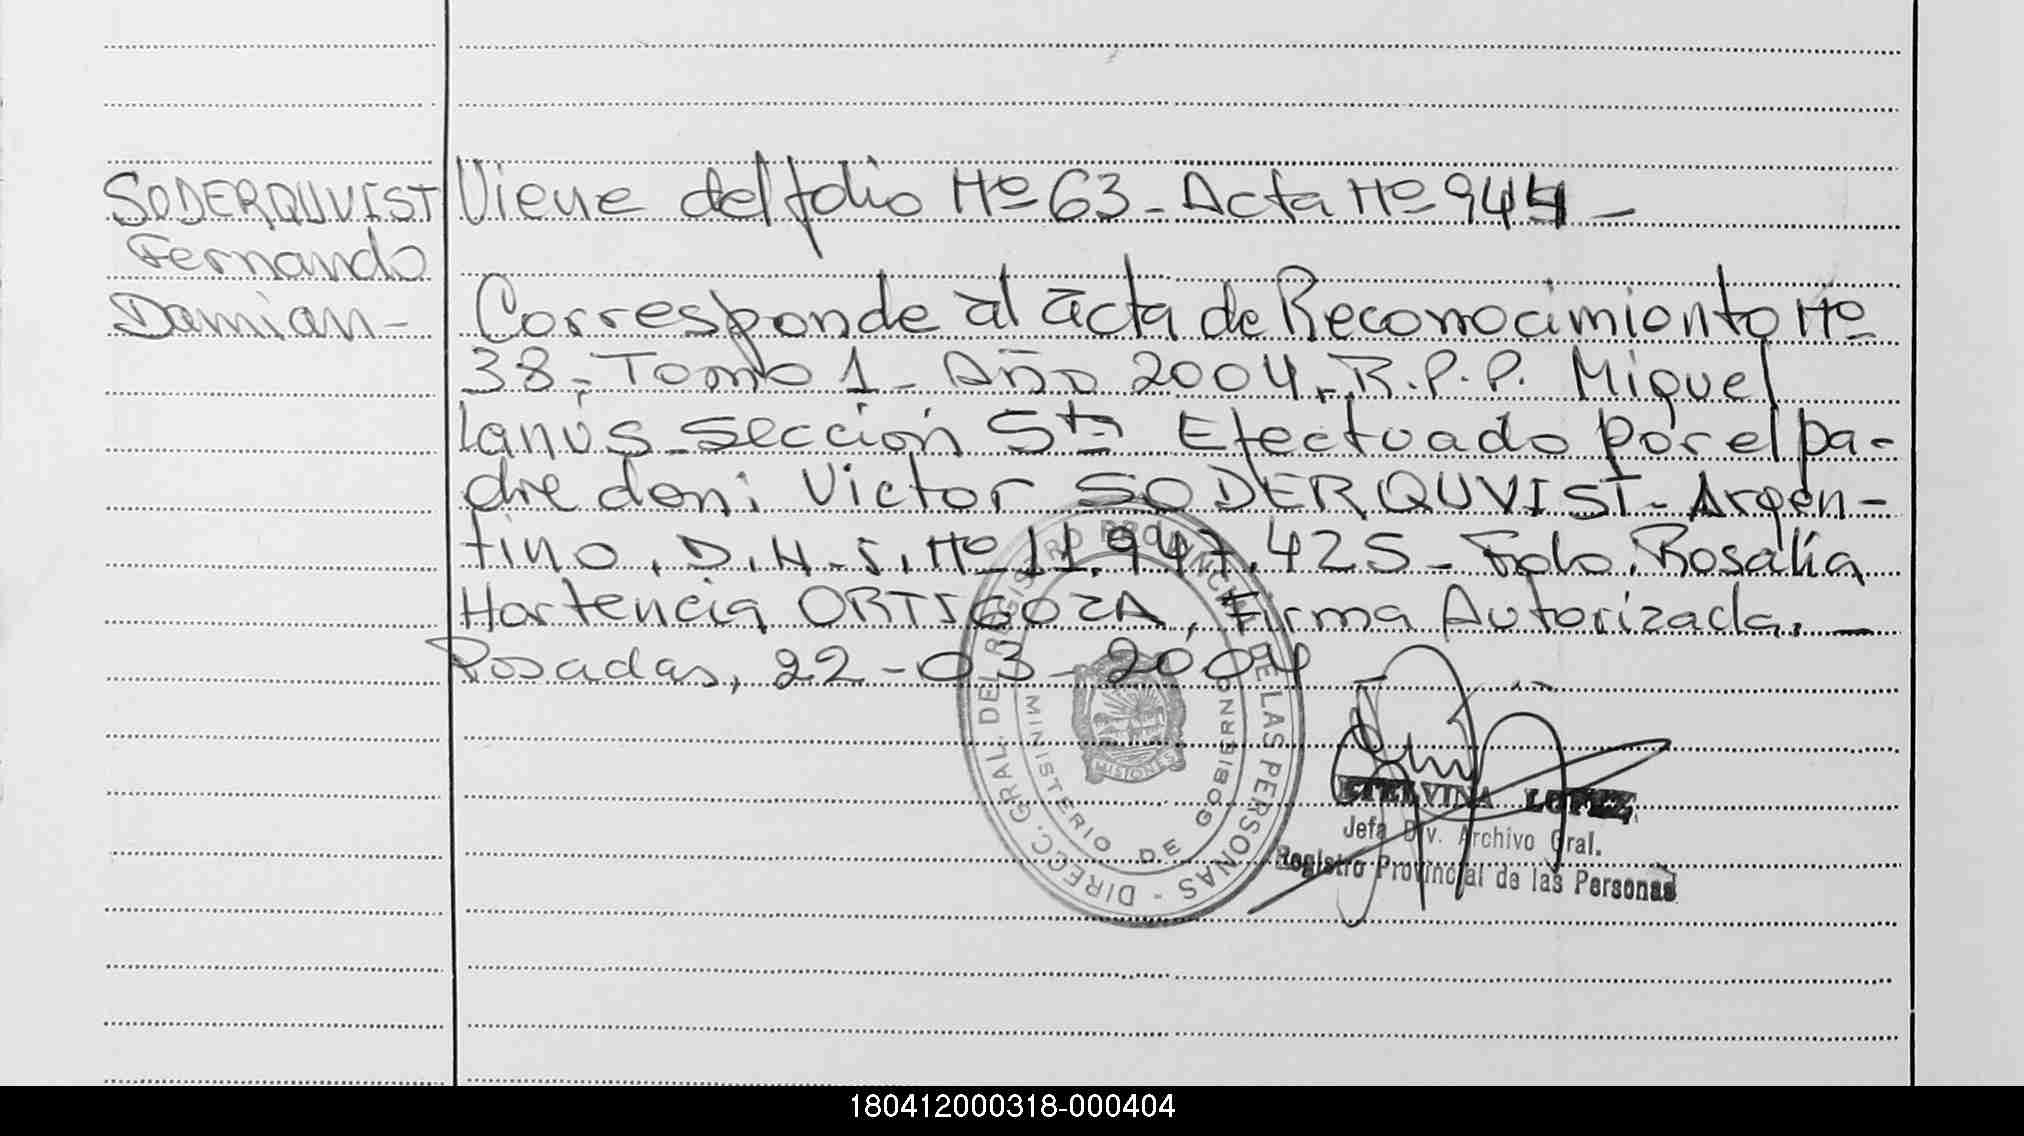 SODERQUVIST
Fernando
Damian-
Viene del folio Nº 63- Acta Nº 944-
Corresponde al acta de Reconocimiento Nº
38- Tomo 1- Año 2004.- R.P.P. Miguel
Lanús- Sección 5ta Efectuado por el pa-
dre don: Victor SODERQUVIST- Argen-
tino, D.N.I. Nº 11.947.425- Fdo: Rosalía
Hortencia ORTIGOZA, Firma Autorizada.-
Posadas, 22-03-2004
DIRECC. GRAL. DEL REGISTRO PROVINCIAL DE LAS PERSONAS -
MINISTERIO DE GOBIERNO
MISIONES
ETELVINA LOPEZ
Jefa Div. Archivo Gral.
Registro Provincial de las Personas
180412000318-000404